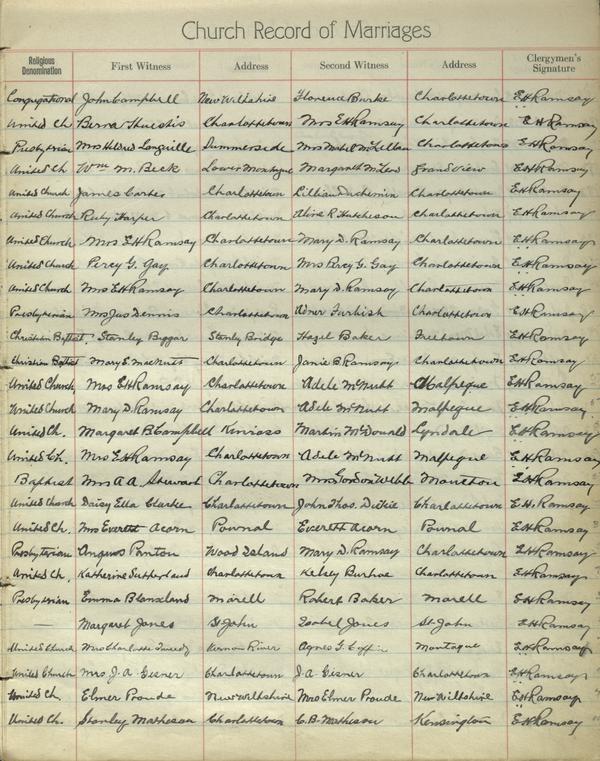 Church Record of Marriages
Religious Denomination First Witness Address Second Witness Address Clergymen's Signature
Congregational John Campbell New Wiltshire Florence Burke Charlottetown E H Ramsay
United Ch Berna Huestis Charlottetown Mrs E H Ramsay Charlottetown E H Ramsay
Presbyterian Mrs Hildred Longville Summerside Mrs McLellan Charlottetown E H Ramsay
United Ch Wm M. Beck Lower Montague Margaret McLeod Grand View E H Ramsay
United Church James Carter Charlottetown Lillian Duchemin Charlottetown E H Ramsay
United Church Ruby Harper Charlottetown Aline R Hutcheson Charlottetown E H Ramsay
United Church Mrs E H Ramsay Charlottetown Mary D. Ramsay Charlottetown E H Ramsay
United Church Percy G. Gay Charlottetown Mrs Percy G. Gay Charlottetown E H Ramsay
United Church Mrs E H Ramsay Charlottetown Mary D. Ramsay Charlottetown E H Ramsay
Presbyterian Mrs Jas Dennis Charlottetown Furbish Charlottetown E H Ramsay
Christian Baptist. Stanley Biggar Stanly Bridge Hazel Baker Freetown E H Ramsay
Christian Baptist Mary E. MacNutt Charlottetown Janie B Ramsay Charlottetown E H Ramsay
United Church, Mrs E H Ramsay Charlottetown Adele McNutt Malpeque E H Ramsay
United Church Mary D. Ramsay Charlottetown Adele McNutt Malpeque E H Ramsay
United Ch. Margaret B Campbell Kinross Martin McDonald Lyndale E H Ramsay
United Ch. Mrs E H Ramsay Charlottetown Adele McNutt Malpeque E H Ramsay
Baptist Mrs A A Steward Charlottetown Mrs Gordon Webb Moncton E H Ramsay
United Church Daisy Etta Clarke Charlottetown John Thos. Dickie Charlottetown E H. Ramsay
United Ch. Mrs Everett Acorn Pownal Everett Acorn Pownal E H Ramsay
Presbyterian Angus Panton Wood Island Mary D. Ramsay Charlottetown E H Ramsay
United Ch. Katherine Sutherland Charlottetown Kelsey Burhoe Charlottetown E H Ramsay
Presbyterian Emma Blansland Marell Robert Baker Marell E H Ramsay
— Margaret Jones St John Isobel Jones St John E H Ramsay
United Church Mrs Charlotte Tweedy Vernon River Agnes G. Coffin Montague E H Ramsay
United Church Mrs J. A Gesner Charlottetown J. A Gesner Charlottetown E H Ramsay
United Ch. Elmer Proude New Wiltshire Mrs Elmer Proude New Wiltshire E H Ramsay
United Ch. Stanley Matheson Charlottetown C. B. Matheson Kensington E H Ramsay